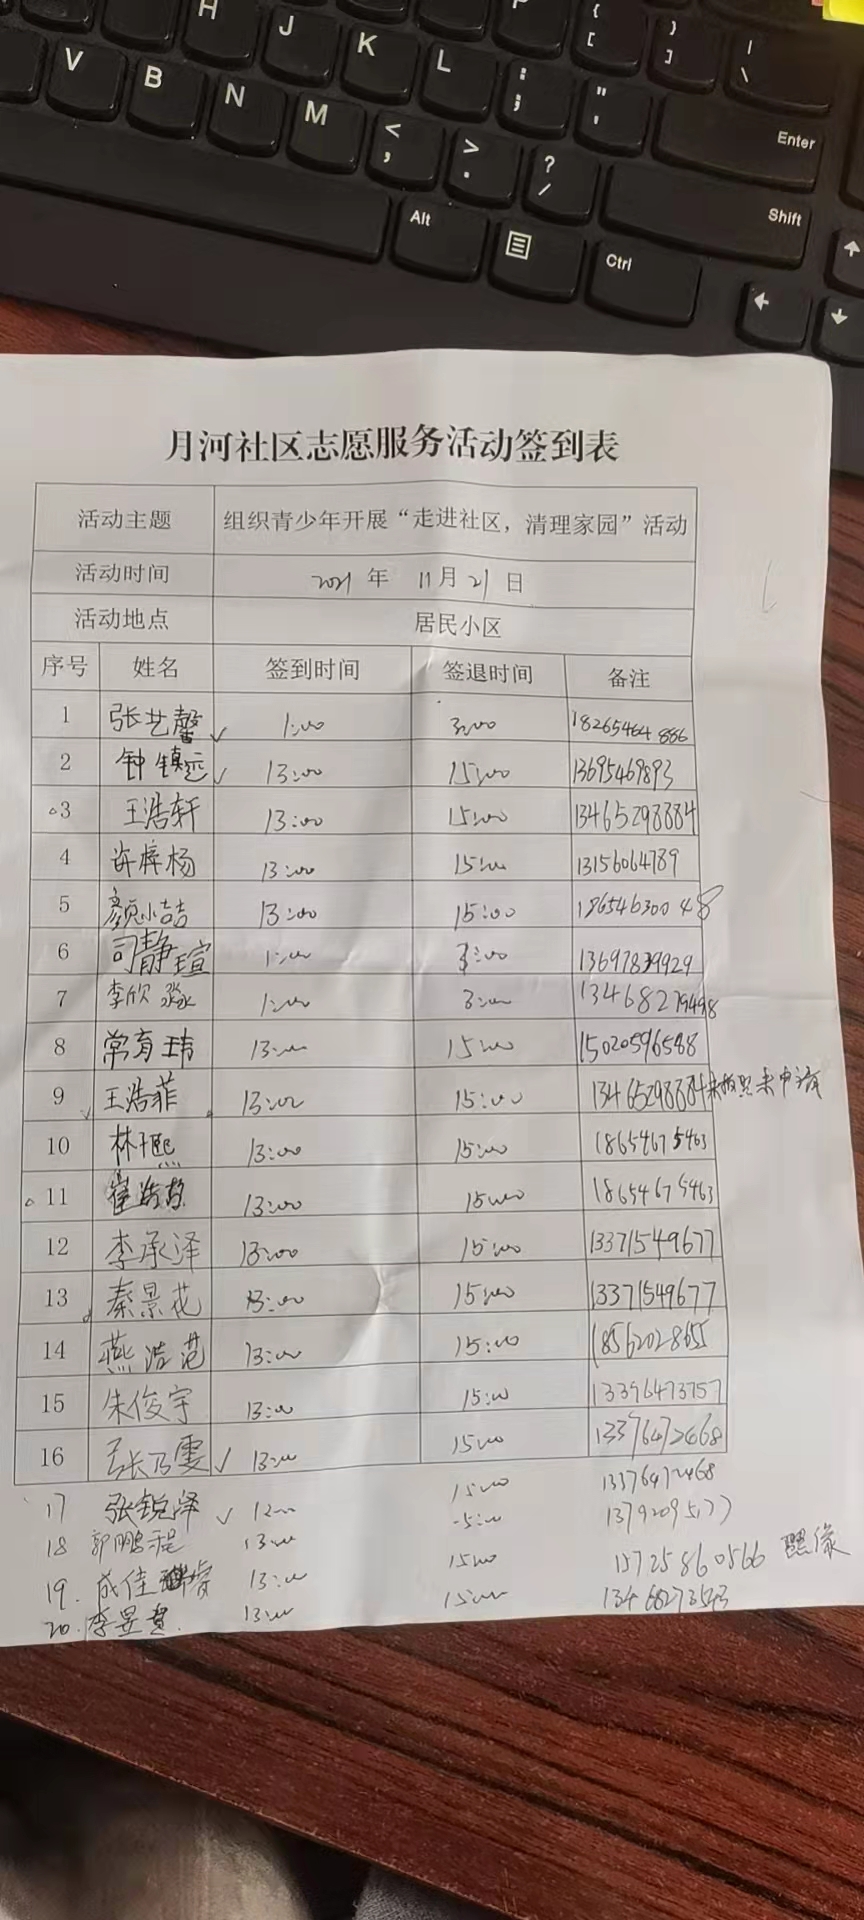 H J K L : ; " ' { [ } ] | \
V B N M < , > . ? / Enter
Alt Ctrl Shift
月河社区志愿服务活动签到表
活动主题 组织青少年开展“走进社区，清理家园”活动
活动时间 2021年 11月21日
活动地点 居民小区
序号 姓名 签到时间 签退时间 备注
1 张艺馨 ✓ 1:00 3:00 18265464886
2 钟镇远 ✓ 13:00 15:00 13695469893
3 王浩轩 13:00 15:00 13465298884
4 许梓杨 13:00 15:00 13156064789
5 颜小喆 13:00 15:00 18654630048
6 司静瑄 1:00 3:00 13697839929
7 李欣淼 1:00 3:00 13468279498
8 常育玮 13:00 15:00 15020596588
9 王浩菲 13:00 15:00 13465298884
10 林熙 13:00 15:00 18654675463
11 崔 13:00 15:00 18654675463
12 李承泽 13:00 15:00 13371549677
13 秦景花 13:00 15:00 13371549677
14 燕浩范 13:00 15:00 18562028655
15 朱俊宇 13:00 15:00 13396473757
16 张乃雯 ✓ 13:00 15:00 13376472468
17 张锐泽 ✓ 15:00 13376472468
18 郭鹏程 13:00
19. 成佳 13:00 15:00 15725860566 照像
20. 李昱 13:00 15:00 13468273543